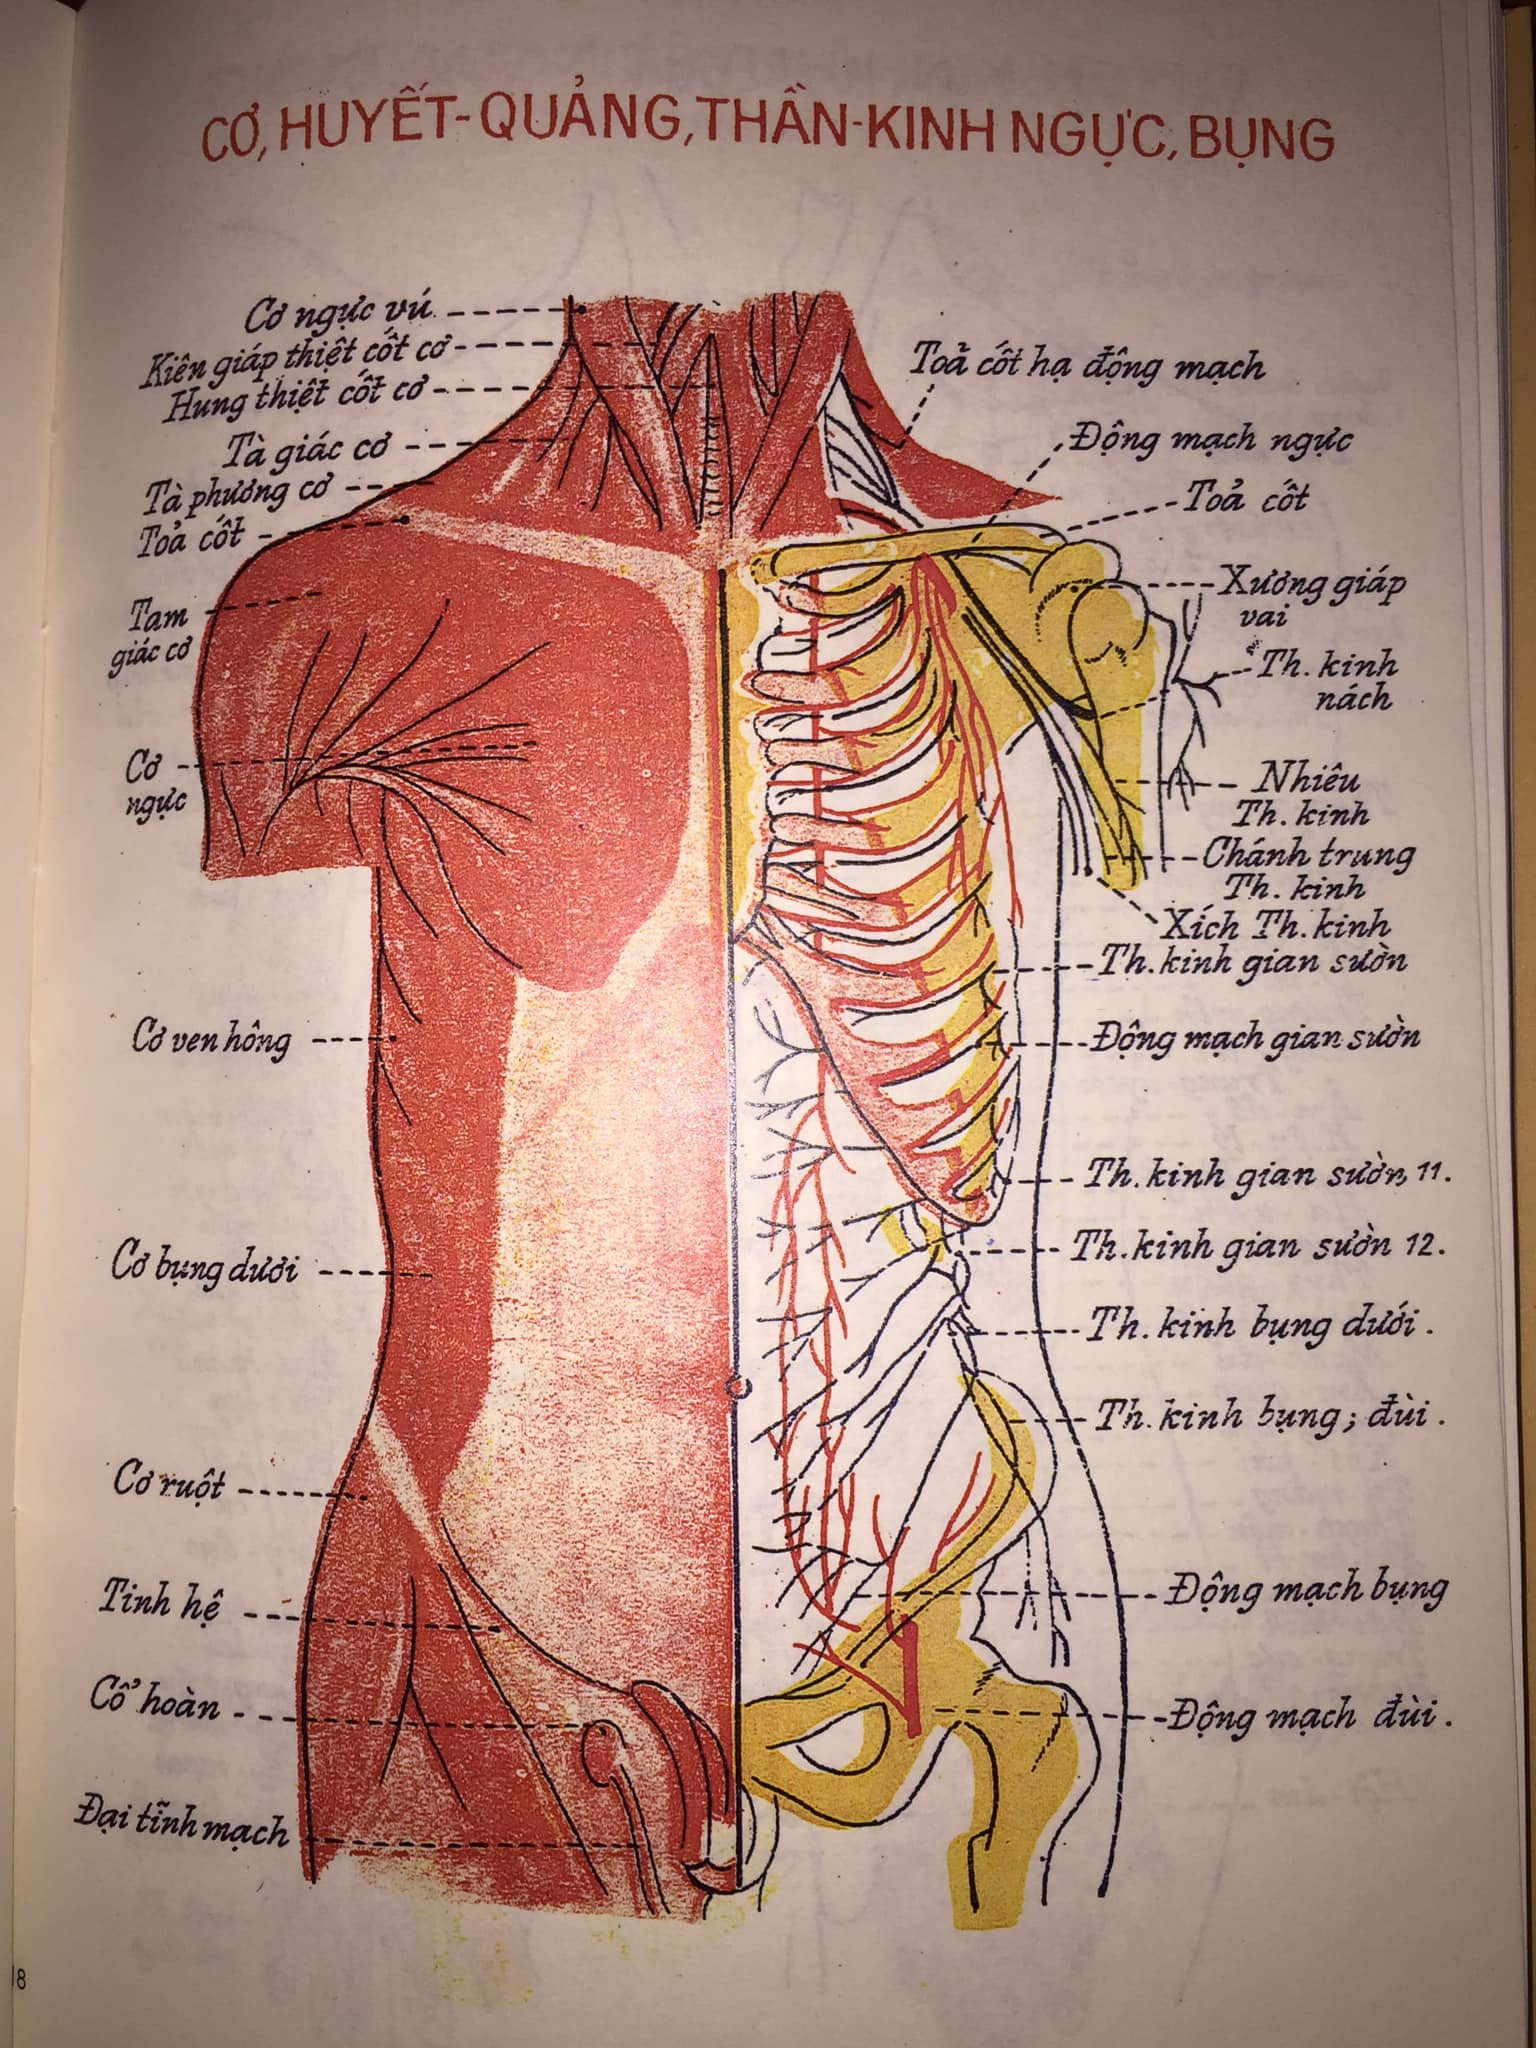 CƠ, HUYẾT-QUẢNG, THẦN-KINH NGỰC, BỤNG
Cơ ngực vú
Kiên giáp thiệt cốt cơ
Hung thiệt cốt cơ
Tà giác cơ
Tà phương cơ
Toả cốt
Tam
giác cơ
Cơ
ngực
Cơ ven hông
Cơ bụng dưới
Cơ ruột
Tinh hệ
Cổ hoàn
Đại tĩnh mạch
Toả cốt hạ động mạch
Động mạch ngực
Toả cốt
Xương giáp
vai
Th. kinh
nách
Nhiêu
Th. kinh
Chánh trung
Th. kinh
Xích Th. kinh
Th. kinh gian sườn
Động mạch gian sườn
Th. kinh gian sườn 11.
Th. kinh gian sườn 12.
Th. kinh bụng dưới.
Th. kinh bụng; đùi.
Động mạch bụng
Động mạch đùi.
18